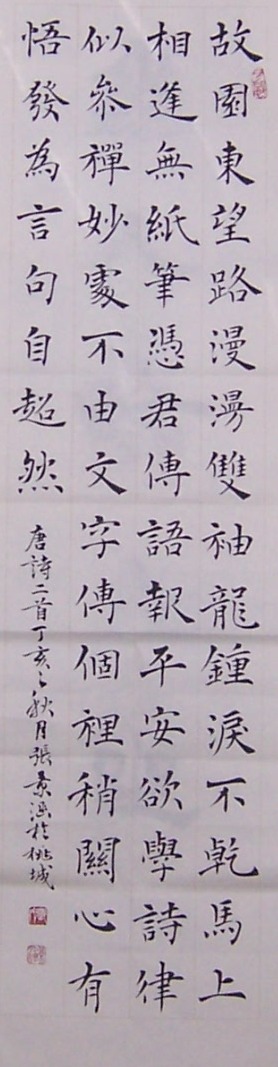 故園東望路漫漫雙袖龍鍾淚不乾馬上
相逢無紙筆憑君傳語報平安欲學詩律
似參禪妙處不由文字傳個裡稍關心有
悟發為言句自超然
唐詩二首丁亥之秋月張景於桃城